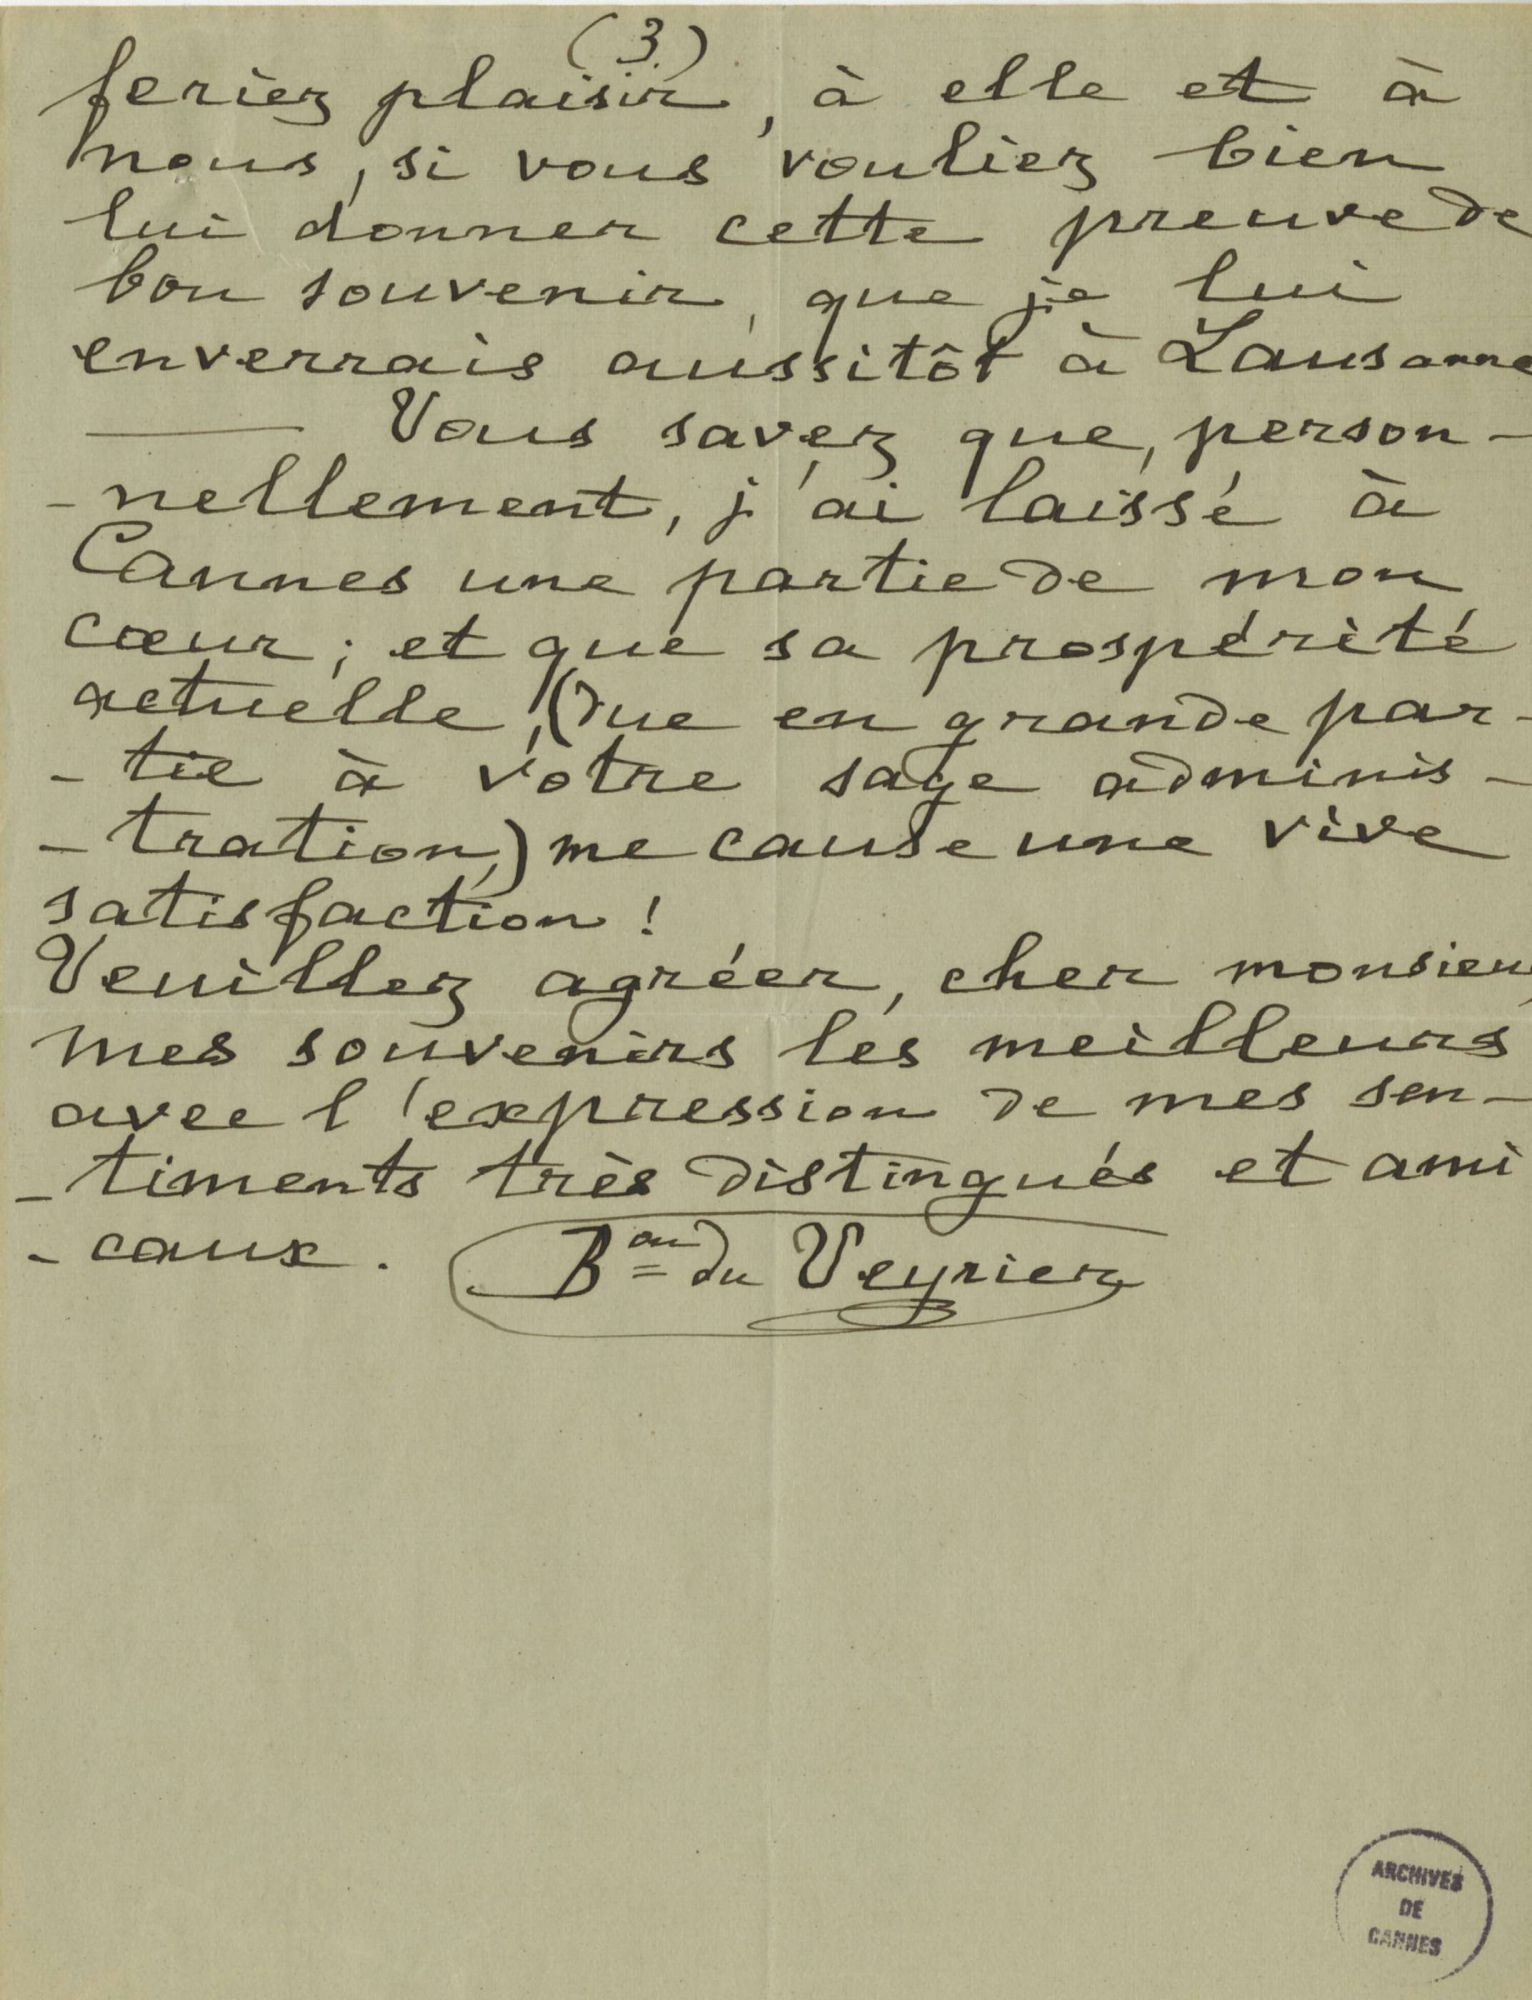 (3.)
feriez plaisir, à elle et à
nous, si vous vouliez bien
lui donner cette preuve de
bon souvenir, que je lui
enverrais aussitôt à Lausanne
—— Vous savez que, person-
-nellement, j'ai laissé à
Cannes une partie de mon
cœur ; et que sa prospérité
actuelle, (due en grande par-
-tie à votre sage adminis-
-tration,) me cause une vive
satisfaction !
Veuillez agréer, cher monsieur,
mes souvenirs les meilleurs
avec l'expression de mes sen-
-timents très distingués et ami
-caux.
Bon du Veyrier
ARCHIVES
DE
CANNES